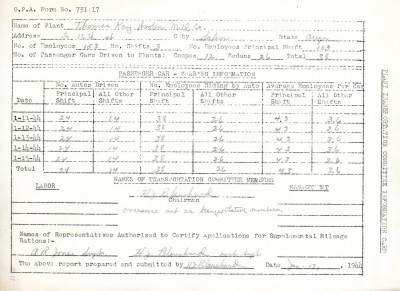 O.P.A. Form No. 751:17
Name of Plant Thomas Kay Woolen Mill Co.
Address So 12th st City Salem State Oregon
No. of Employees 153 No. Shifts 3 No. Employees Principal Shift 103
No. of Passenger Cars Driven to Plants: Coupes 12 Sedans 26 Total 38
PASSENGER CAR - SHARING INFORMATION
No. Autos Driven No. Employees Riding by Auto Average Employees Per Car
Date Principal Shift All Other Shifts Principal Shift All Other Shifts Principal Shift All Other Shifts
1-11-44 24 14 38 26 4.3 3.6
1-12-44 24 14 38 26 4.3 3.6
1-13-44 24 14 38 26 4.3 3.6
1-14-44 24 14 38 26 4.3 3.6
1-15-44 24 14 38 26 4.3 3.6
Total 24 14 38 26 4.3 3.6
NAMES OF TRANSPORTATION COMMITTEE MEMBERS
LABOR MANAGEMENT
Chairman
overseers act as transportation members
Names of Representatives Authorized to Certify Applications for Supplemental Mileage
Rations:-
A R Jones
The above report prepared and submitted by Date Jan 17, 1944
PLANT TRANSPORTATION COMMITTEE INFORMATION CARD